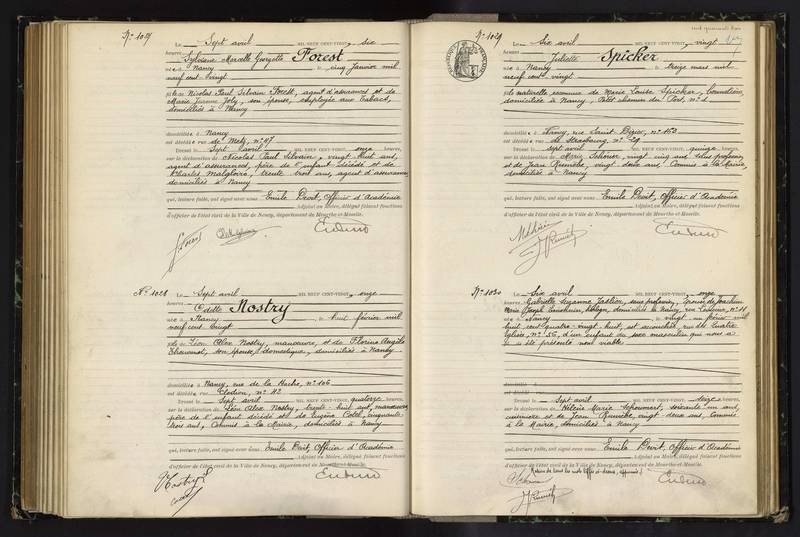 N° 1027
Le Sept avril MIL NEUF CENT-VINGT, six
heures
Sylviane Marcelle Georgette Forest
née à Nancy le cinq Janvier mil
neuf cent vingt
fille de Nicolas Paul Silvain Forest, agent d'assurances et de
Marie Jeanne Joly, son épouse, employée aux tabacs,
domiciliés à Nancy
domicilié à Nancy
est décédée rue de Metz, n° 47
Dressé le Sept avril MIL NEUF CENT-VINGT, onze heures,
sur la déclaration de Nicolas Paul Silvain, vingt huit ans,
agent d'assurances, père de l'enfant décédé et de
Charles Malgloire, trente trois ans, agent d'assurances
domiciliés à Nancy
qui, lecture faite, ont signé avec nous Emile Devit, Officier d'Académie
Adjoint au Maire, délégué faisant fonctions
d'officier de l'état civil de la Ville de Nancy, département de Meurthe-et-Moselle.
N° 1028
Le Sept avril MIL NEUF CENT-VINGT, onze
heures
Odette Nostry
née à Nancy le huit février mil
neuf cent vingt
fille de Léon Alex Nostry, manoeuvre, et de Florine Angèle
son épouse, domestique, domiciliés à Nancy
domiciliée à Nancy, rue de la Hache, n° 106
est décédée rue Clodion, n° 42
Dressé le Sept avril MIL NEUF CENT-VINGT, quatorze heures,
sur la déclaration de Léon Alex Nostry, trente huit ans, manoeuvre
père de l'enfant décédé et de Eugène Colel, cinquante
trois ans, Commis à la Mairie, domiciliés à Nancy
qui, lecture faite, ont signé avec nous Emile Devit, Officier d'Académie
Adjoint au Maire, délégué faisant fonctions
d'officier de l'état civil de la Ville de Nancy, département de Meurthe-et-Moselle.
N° 1029
Le Six avril MIL NEUF CENT-VINGT, vingt
heures
Juliette Spicker
née à Nancy le treize mars mil
neuf cent vingt
fille naturelle reconnue de Marie Louise Spicker,
domiciliée à Nancy, Petit chemin du Port, n° 1
domiciliée à Nancy, rue Saint Dizier, n° 153
est décédée rue de Strasbourg n° 29
Dressé le sept avril MIL NEUF CENT-VINGT, quinze heures,
sur la déclaration de Marie vingt cinq ans, sans profession,
et de Jean vingt deux ans, Commis à la Mairie,
domiciliés à Nancy
qui, lecture faite, ont signé avec nous Emile Devit, Officier d'Académie
Adjoint au Maire, délégué faisant fonctions
d'officier de l'état civil de la Ville de Nancy, département de Meurthe-et-Moselle.
N° 1030
Le Six avril MIL NEUF CENT-VINGT, onze
heures Gabrielle Suzanne sans profession, Epouse de Joachim
Marie Joseph domicilié à Nancy, rue n° 11
née à Nancy le vingt un février mil
huit cent quatre-vingt huit, est accouchée rue des Quatre
Eglises, n° 56, d'un enfant du sexe masculin qui nous a
été présenté non viable
Dressé le Sept avril MIL NEUF CENT-VINGT, seize heures,
sur la déclaration de Hélène Marie soixante un ans,
et de Jean vingt deux ans, Commis
à la Mairie, domiciliés à Nancy
qui, lecture faite, ont signé avec nous Emile Devit, Officier d'Académie
Adjoint au Maire, délégué faisant fonctions
d'officier de l'état civil de la Ville de Nancy, département de Meurthe-et-Moselle.